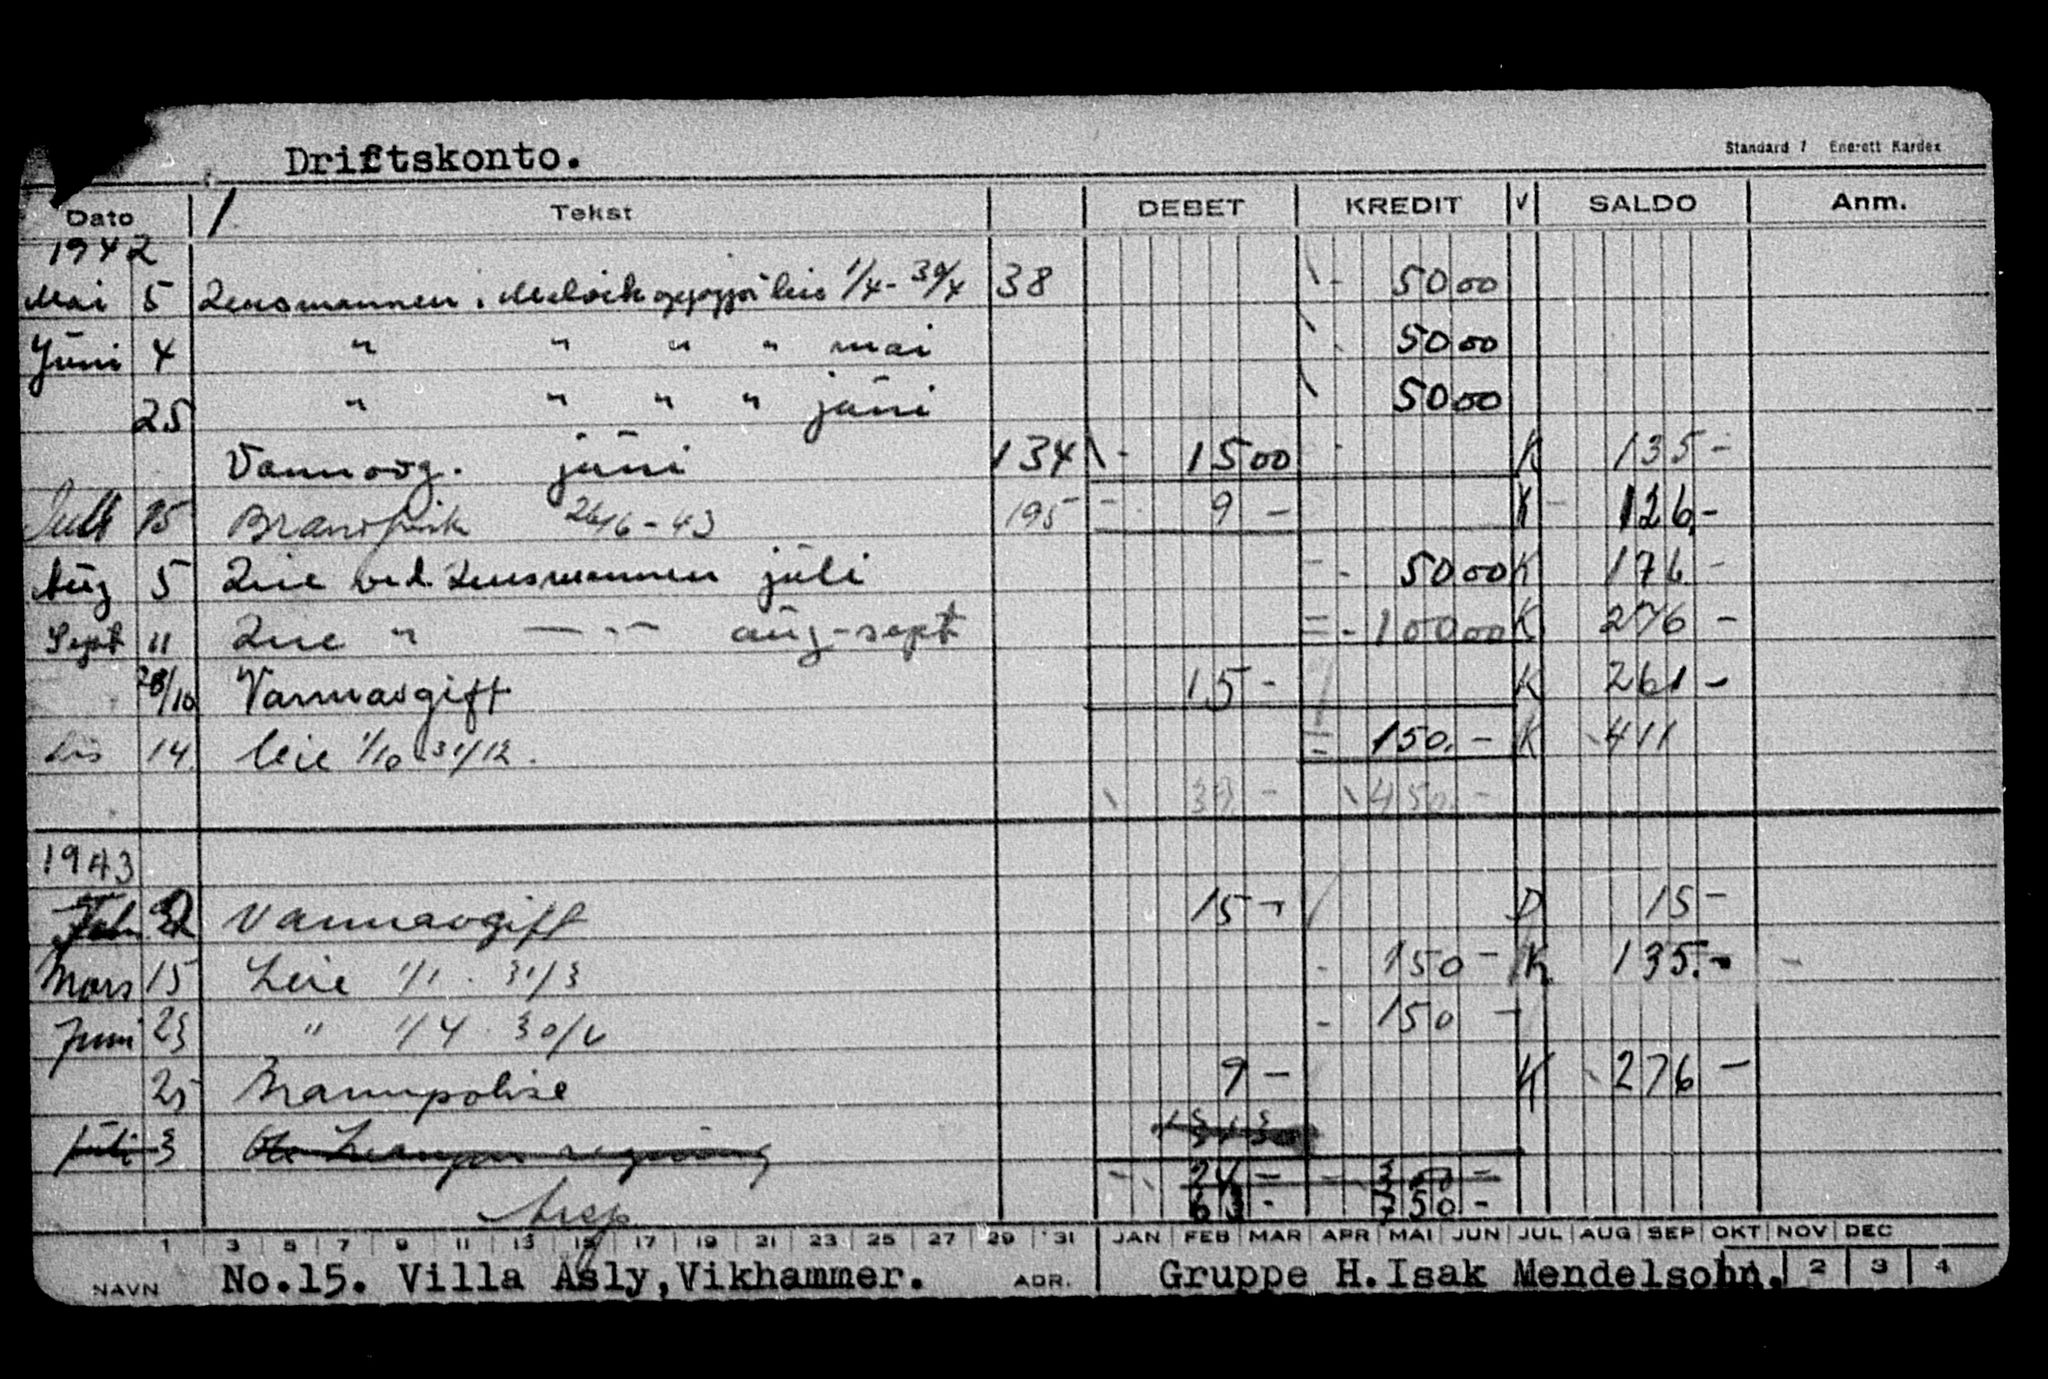 Driftskonto.
Standard 7 Enerett Kardex
Dato Tekst DEBET KREDIT V SALDO Anm.
1942
Mai 5 Lensmannen i Malvik oppgjør leie 1/4 - 30/4 38 50 00
Juni 4 " " " " mai 50 00
25 " " " " juni 50 00
Vannavg. juni 134 15 00 K 135 -
Juli 15 26/6 - 43 195 9 - K 126 -
Aug 5 Leie ved Lensmannen juli 50 00 K 176 -
Sept 11 Leie " — " — aug - sept 100 00 K 276 -
28/10 Vannavgift 15 - K 261 -
Des 14 leie 1/10 31/12. 150. - K 411
39 - 450. -
1943
Feb Vannavgift 15 - D 15 -
Mars 15 Leie 1/1 - 31/3 150 - K 135. -
Juni 23 " 1/4 - 30/6 150 -
25 Brannpolise 9 - K 276 -
Juli 3
24 - 300 -
63 - 750 -
1 3 5 7 9 11 13 15 17 19 21 23 25 27 29 31 JAN FEB MAR APR MAI JUN JUL AUG SEP OKT NOV DEC
NAVN No.15. Villa Asly, Vikhammer. ADR. Gruppe H. Isak Mendelsohn. 2 3 4